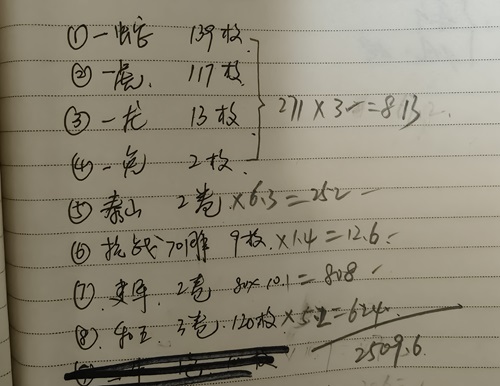 ① 一蛇 139枚
② 一虎. 117枚
271×3=813
③ 一龙 13枚
④ 一兔 2枚
⑤ 泰山 2卷×6.3=252
⑥ 抗战70周年 9枚×1.4=12.6
⑦. 建军 2卷 80×10.1=808
⑧. 和五 3卷 120枚×5.2=624
2509.6